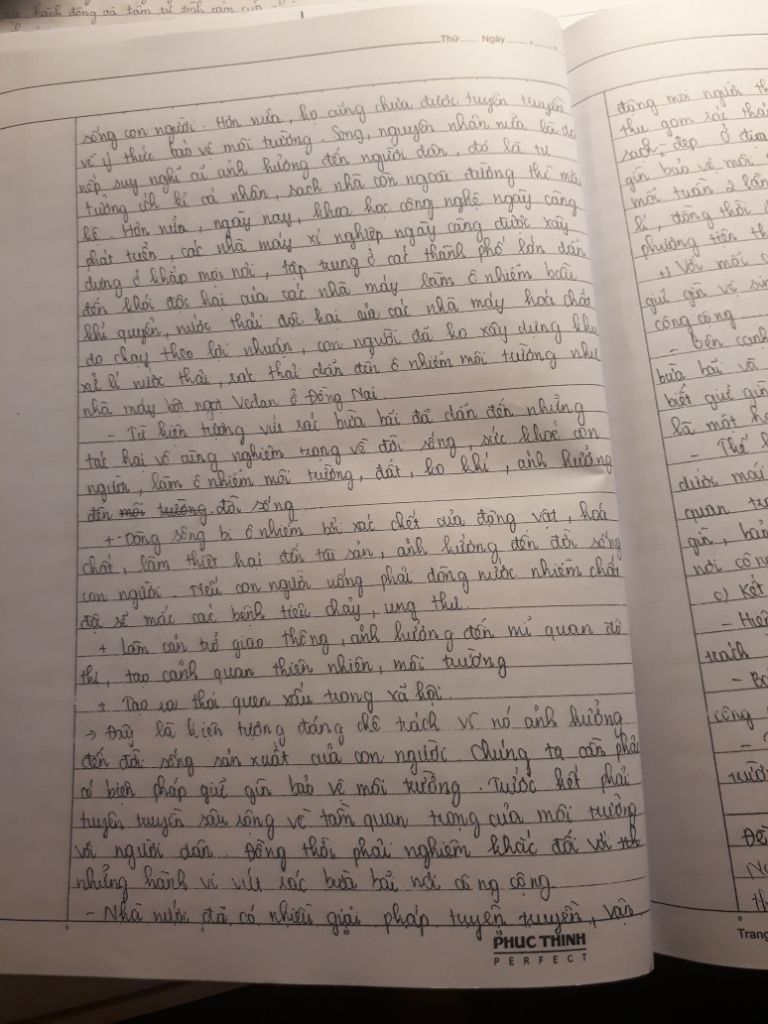 hành động và tâm tư tình cảm của
Thứ ...... Ngày ...... . ......
sống con người. Hơn nữa, họ cũng chưa được tuyên truyền
về ý thức bảo vệ môi trường. Song, nguyên nhân nữa là do
nếp suy nghĩ cũ ảnh hưởng đến người dân, đó là tư
tưởng ích kỉ cá nhân, sạch nhà còn ngoài đường thì mặc
kệ. Hơn nữa, ngày nay, khoa học công nghệ ngày càng
phát triển, các nhà máy xí nghiệp ngày càng được xây
dựng ở khắp mọi nơi, tập trung ở các thành phố lớn dẫn
đến khói độc hại của các nhà máy làm ô nhiễm bầu
khí quyển, nước thải độc hại của các nhà máy hoá chất
do chạy theo lợi nhuận, con người đã ko xây dựng khu
xử lí nước thải, rác thải dẫn đến ô nhiễm môi trường như
nhà máy bột ngọt Vedan ở Đồng Nai.
- Từ hiện tượng vứt rác bừa bãi đã dẫn đến những
tác hại vô cùng nghiêm trọng về đời sống, sức khoẻ con
người, làm ô nhiễm môi trường, đất, ko khí, ảnh hưởng
đến môi trường đời sống
+ Dòng sông bị ô nhiễm bởi xác chết của động vật, hoá
chất, làm thiệt hại đến tài sản, ảnh hưởng đến đời sống
con người. Nếu con người uống phải dòng nước nhiễm chất
độc sẽ mắc các bệnh tiêu chảy, ung thư.
+ Làm cản trở giao thông, ảnh hưởng đến mĩ quan đô
thị, tạo cảnh quan thiên nhiên, môi trường
+ Tạo ra thói quen xấu trong xã hội.
→ Đây là hiện tượng đáng chê trách vì nó ảnh hưởng
đến đời sống sản xuất của con người. Chúng ta cần phải
có biện pháp giữ gìn bảo vệ môi trường. Trước hết phải
tuyên truyền sâu rộng về tầm quan trọng của môi trường
với người dân. Đồng thời phải nghiêm khắc đối với
những hành vi vứt rác bừa bãi nơi công cộng.
- Nhà nước đã có nhiều giải pháp tuyên truyền, vận
PHUC THINH
PERFECT
động mọi người th
thu gom rác thải
sạch - đẹp ở đưa
gìn bảo vệ môi
mỗi tuần 2 lần
lí, đồng thời
phương tiện th
+) Với mỗi c
giữ gìn vệ sin
công cộng
- Bên cạnh
bừa bãi và
biết giữ gìn
là một h
- Thế h
dưới mái
quan tr
gìn, bảo
nơi công
c) Kết
- Hiện
trách
- Bả
công
trườn
Đề
th
Trang